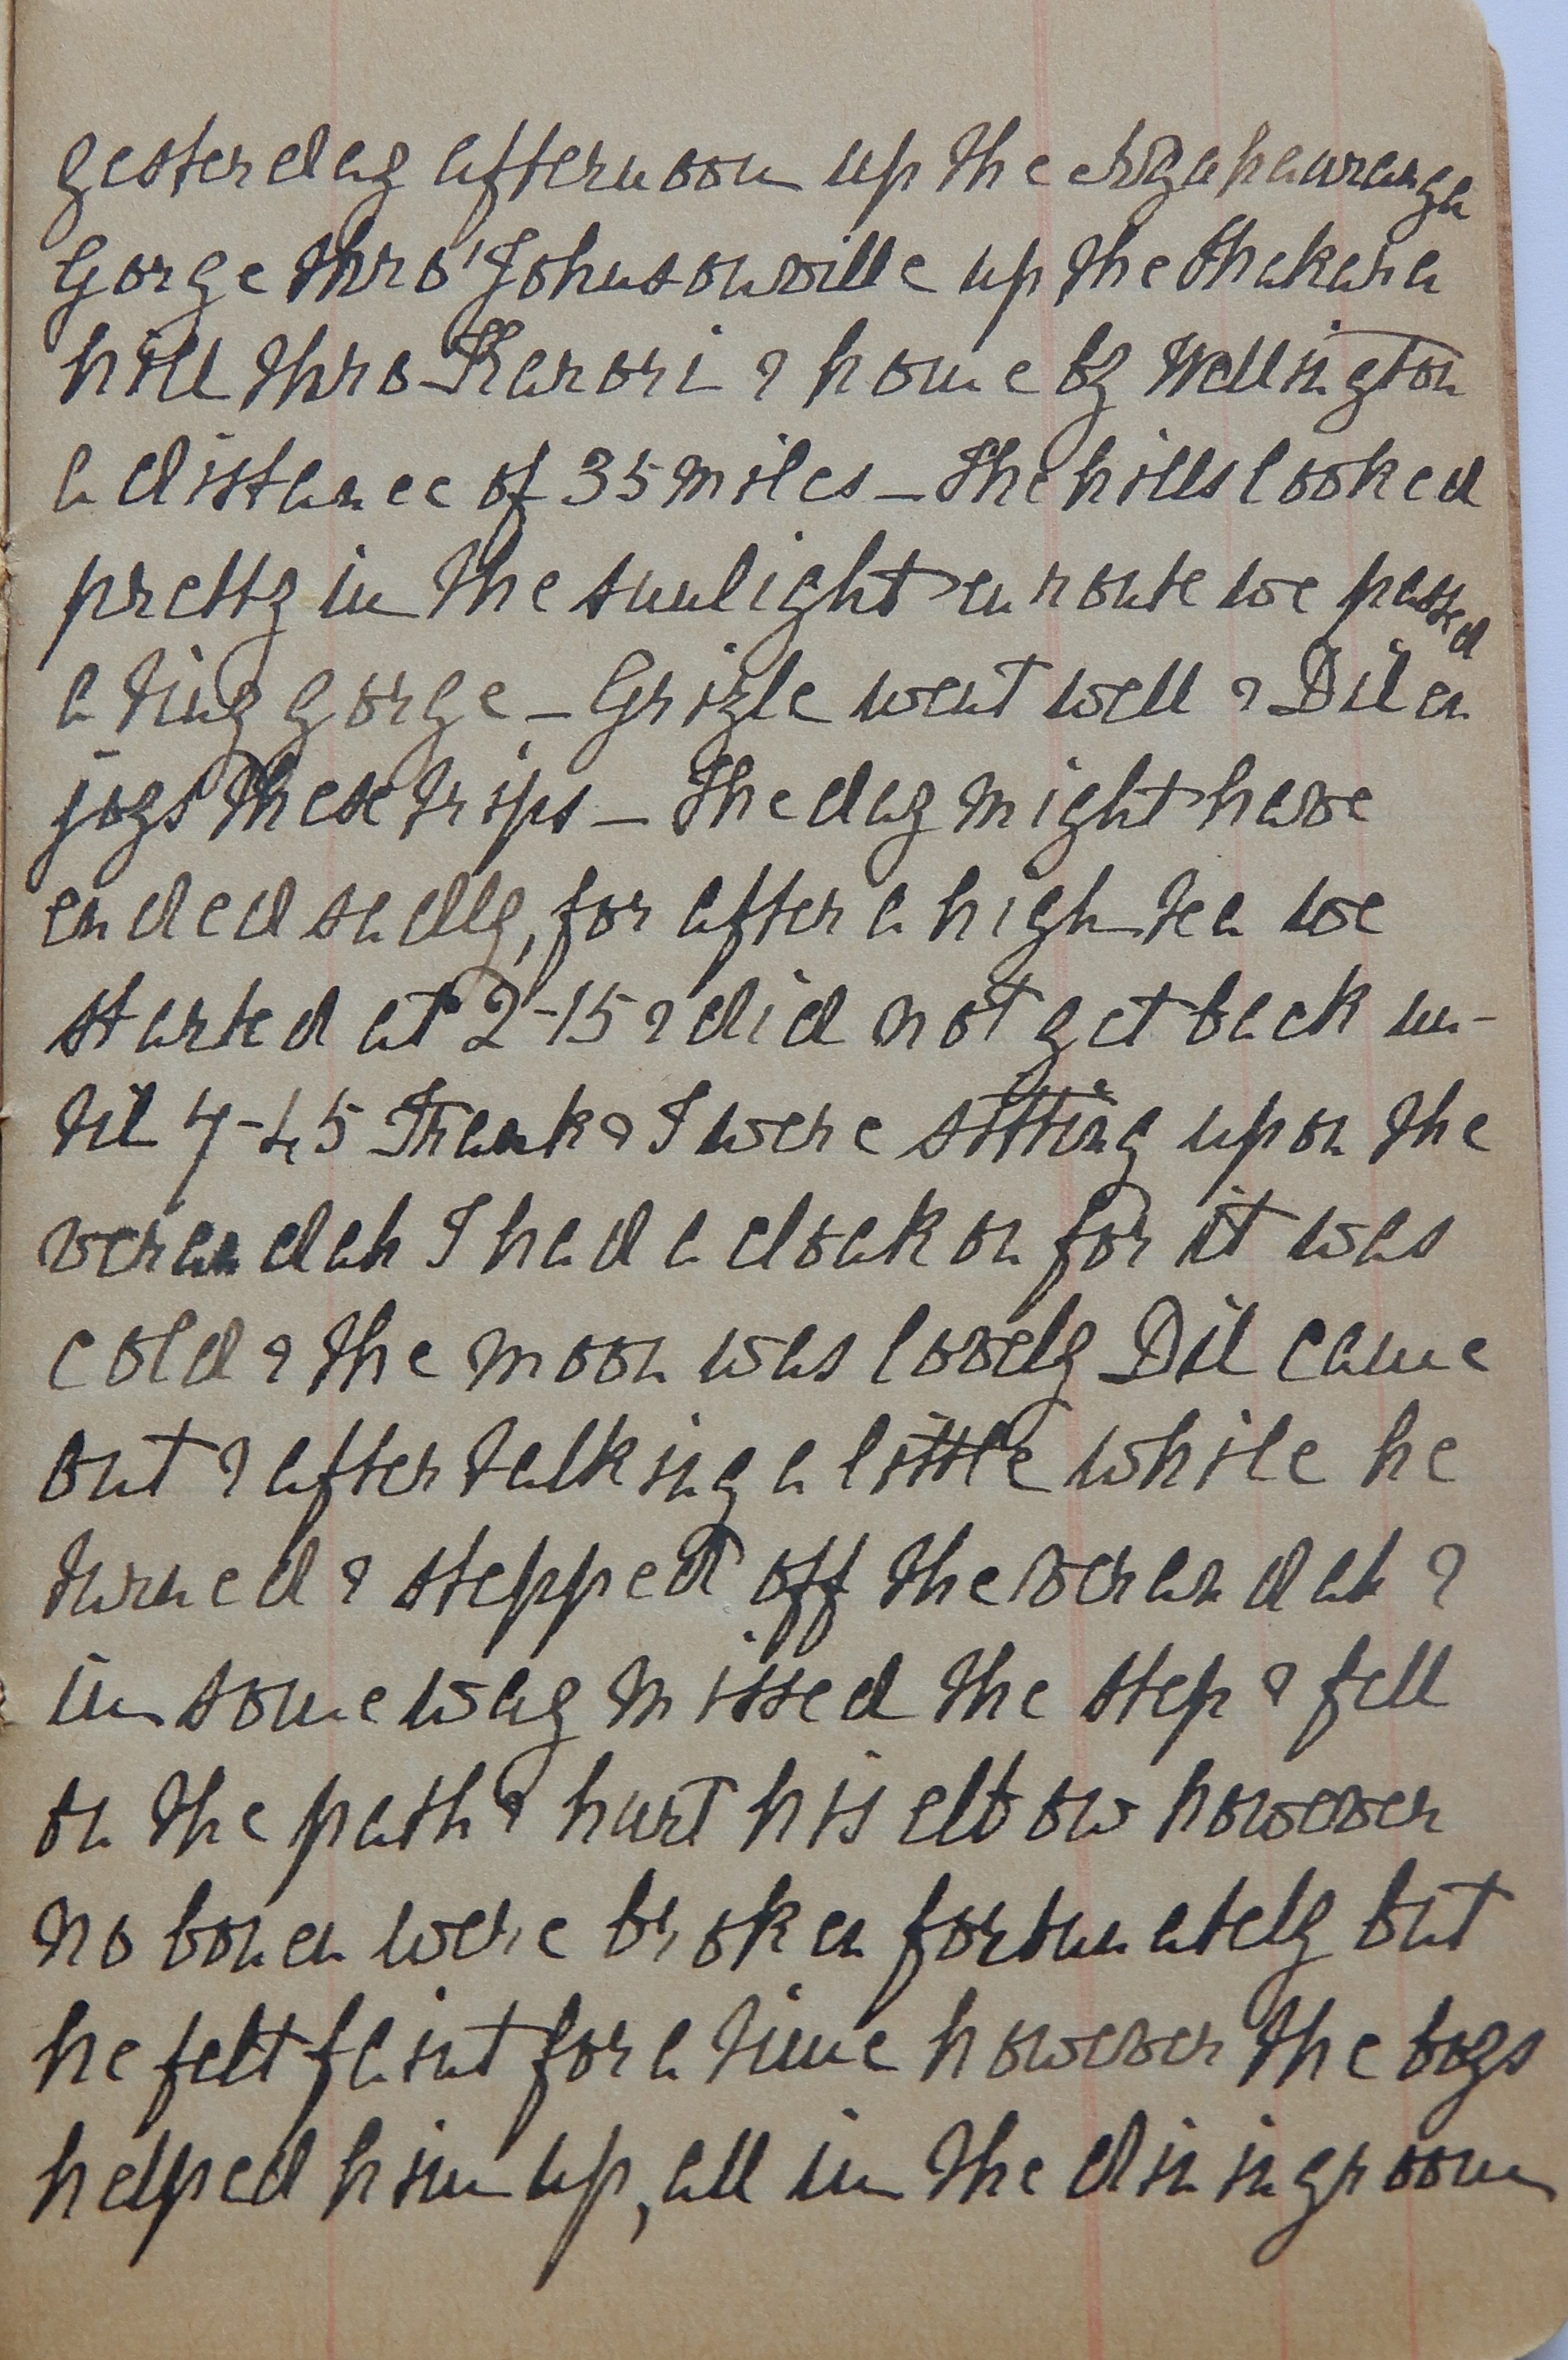 yesterday afternoon up the Ngahauranga
Gorge thro' Johnsonville up the Makara
hill thro Karori & home by Wellington
a distance of 35 miles – The hills looked
pretty in the sunlight en route we passed
a tiny gorge – Grizle went well & Dil en
joys these trips – The day might have
ended sadly, for after a high tea we
started at 2-15 & did not get back un-
til 7-45 Frank & I were sitting upon the
verandah I had a cloak on for it was
cold & the moon was lovely Dil came
out & after talking a little while he
turned & stepped off the verandah &
in some way missed the step & fell
on the path & hurt his elbow however
no bones were broken fortunately but
he felt faint for a time however the boys
helped him up, all in the diningroom